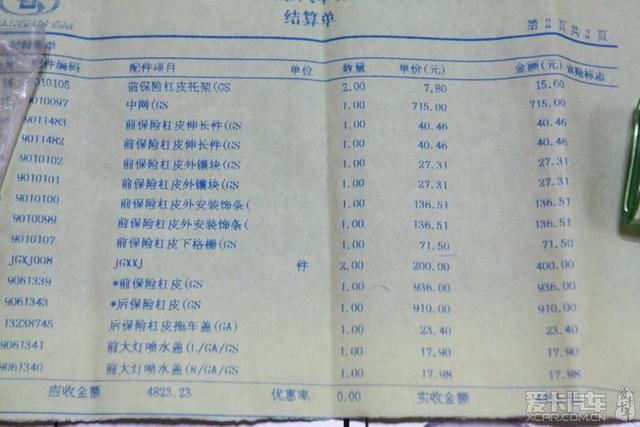 结算单
第 2 页共 2 页
配件编码 配件项目 单位 数量 单价(元) 金额(元) 索赔标志
9010105 前保险杠皮托架(GS 2.00 7.80 15.60
9010097 中网(GS 1.00 715.00 715.00
9011483 前保险杠皮伸长件(GS 1.00 40.46 40.46
9011482 前保险杠皮伸长件(GS 1.00 40.46 40.46
9010102 前保险杠皮外镶块(GS 1.00 27.31 27.31
9010101 前保险杠皮外镶块(GS 1.00 27.31 27.31
9010100 前保险杠皮外安装饰条( 1.00 136.51 136.51
9010099 前保险杠皮外安装饰条( 1.00 136.51 136.51
9010107 前保险杠皮下格栅(GS 1.00 71.50 71.50
JGXJ008 JGXXJ 件 2.00 200.00 400.00
9061339 *前保险杠皮(GS 1.00 936.00 936.00
9061343 *后保险杠皮(GS 1.00 910.00 910.00
13238745 后保险杠皮拖车盖(GA) 1.00 23.40 23.40
9061341 前大灯喷水盖(L/GA/GS 1.00 17.90 17.90
9061340 前大灯喷水盖(R/GA/GS 1.00 17.98 17.98
应收金额 4823.23 优惠率 0.00 实收金额
爱卡汽车
XCAR.COM.CN